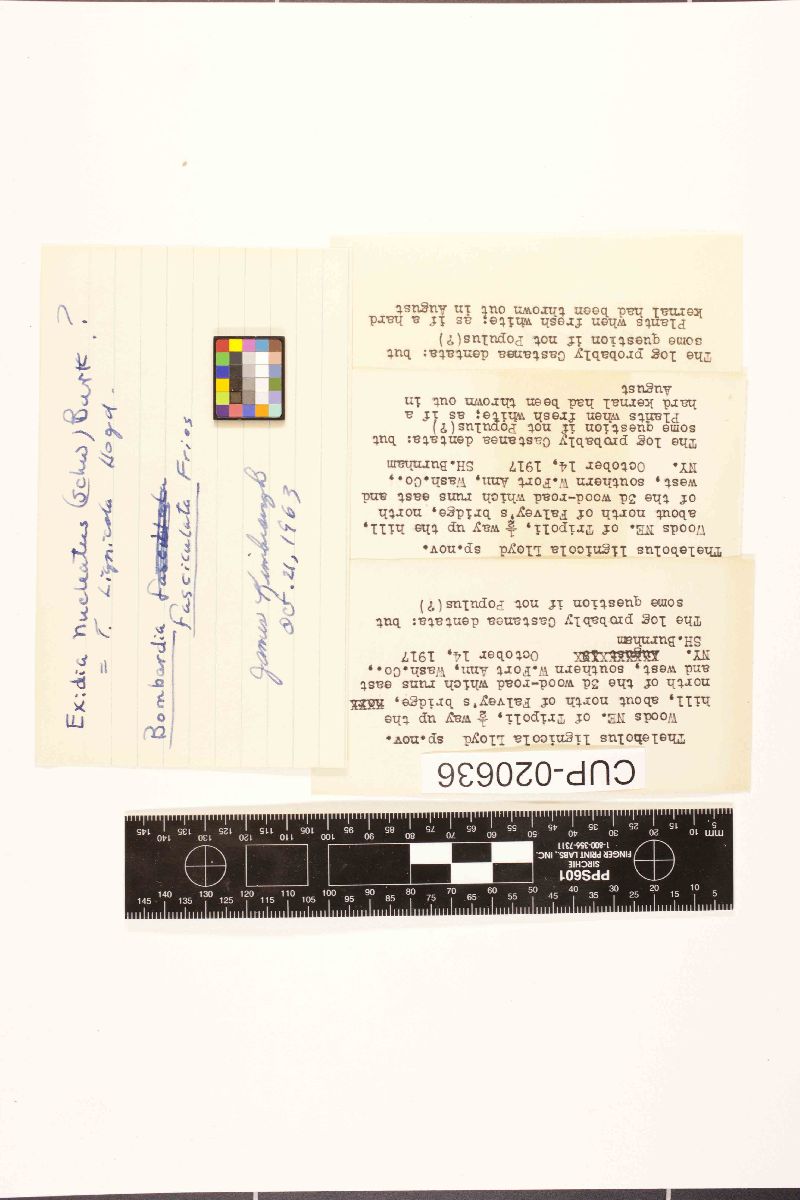 Exidia nucleatus (Schw) Burk. ?
= T. Lignicola Lloyd.
Bombardia
Fasciculata Fries
James Kimbrough
Oct. 21, 1963
CUP-020636
Thelebolus lignicgla Lloyd sp.nov.
Woods NE. of Tripoli, ½ way up the
hill, about north of Falvey's bridge,
north of the 3d wood-road which runs east
and west, southern W.Fort Ann, Wash.Co.,
NY. October 14, 1917
SH.Burnham
The log probably Castanea dentata: but
some question if not Populus(?)
Thelebolus lignicola Lloyd sp.nov.
Woods NE. of Tripoli, ½ way up the hill,
about north of Falvey's bridge, north
of the 3d wood-road which runs east and
west, southern W.Fort Ann, Wash.Co.,
NY. October 14, 1917 SH.Burnham
The log probably Castanea dentata: but
some question if not Populus(?)
Plants when fresh white: as if a
hard kernel had been thrown out in
August
The log probably Castanea dentata: but
some question if not Populus(?)
Plants when fresh white: as if a hard
kernel had been thrown out in August
mm
PPS601
SIRCHIE
FINGER PRINT LABS., INC.
1-800-356-7311
5 10 15 20 25 30 35 40 45 50 55 60 65 70 75 80 85 90 95 100 105 110 115 120 125 130 135 140 145
5 10 15 20 25 30 35 40 45 50 55 60 65 70 75 80 85 90 95 100 105 110 115 120 125 130 135 140 145